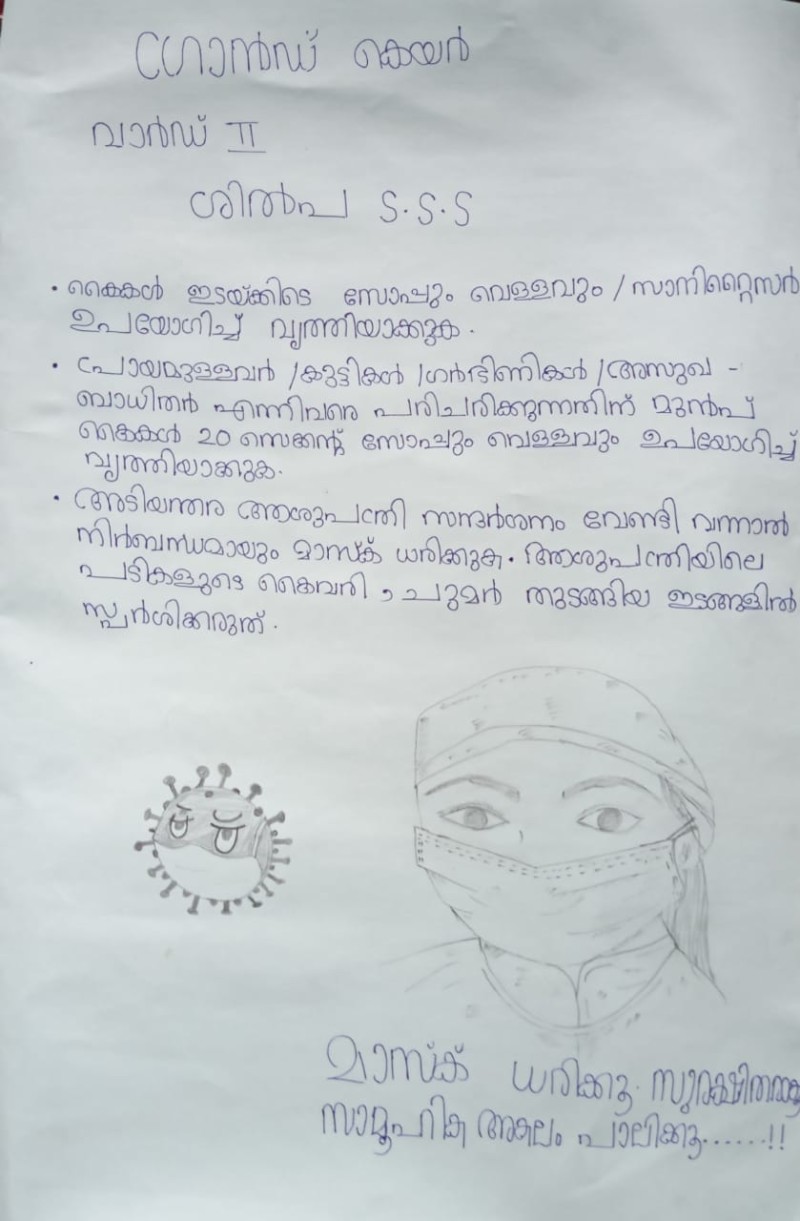 ഗ്രാൻഡ് കെയർ
വാർഡ് II
ശിൽപ S.S.S
• കൈകൾ ഇടയ്ക്കിടെ സോപ്പും വെള്ളവും / സാനിറ്റൈസർ
ഉപയോഗിച്ച് വൃത്തിയാക്കുക.
• പ്രായമുള്ളവർ /കുട്ടികൾ /ഗർഭിണികൾ /അസുഖ -
ബാധിതർ എന്നിവരെ പരിചരിക്കുന്നതിന് മുൻപ്
കൈകൾ 20 സെക്കന്റ് സോപ്പും വെള്ളവും ഉപയോഗിച്ച്
വൃത്തിയാക്കുക.
• അടിയന്തര ആശുപത്രി സന്ദർശനം വേണ്ടി വന്നാൽ
നിർബന്ധമായും മാസ്ക് ധരിക്കുക. ആശുപത്രിയിലെ
പടികളുടെ കൈവരി, ചുമർ തുടങ്ങിയ ഇടങ്ങളിൽ
സ്പർശിക്കരുത്.
മാസ്ക് ധരിക്കൂ.
സാമൂഹിക അകലം പാലിക്കൂ......!!